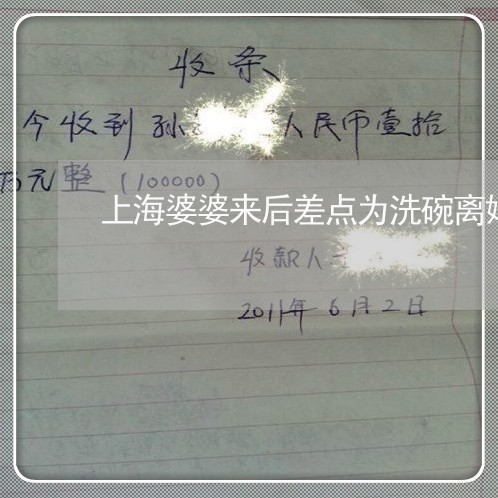 收条
今收到孙 人民币壹拾
万元整(100000)
上海婆婆来后差点为洗碗离婚
收款人
2011年6月2日